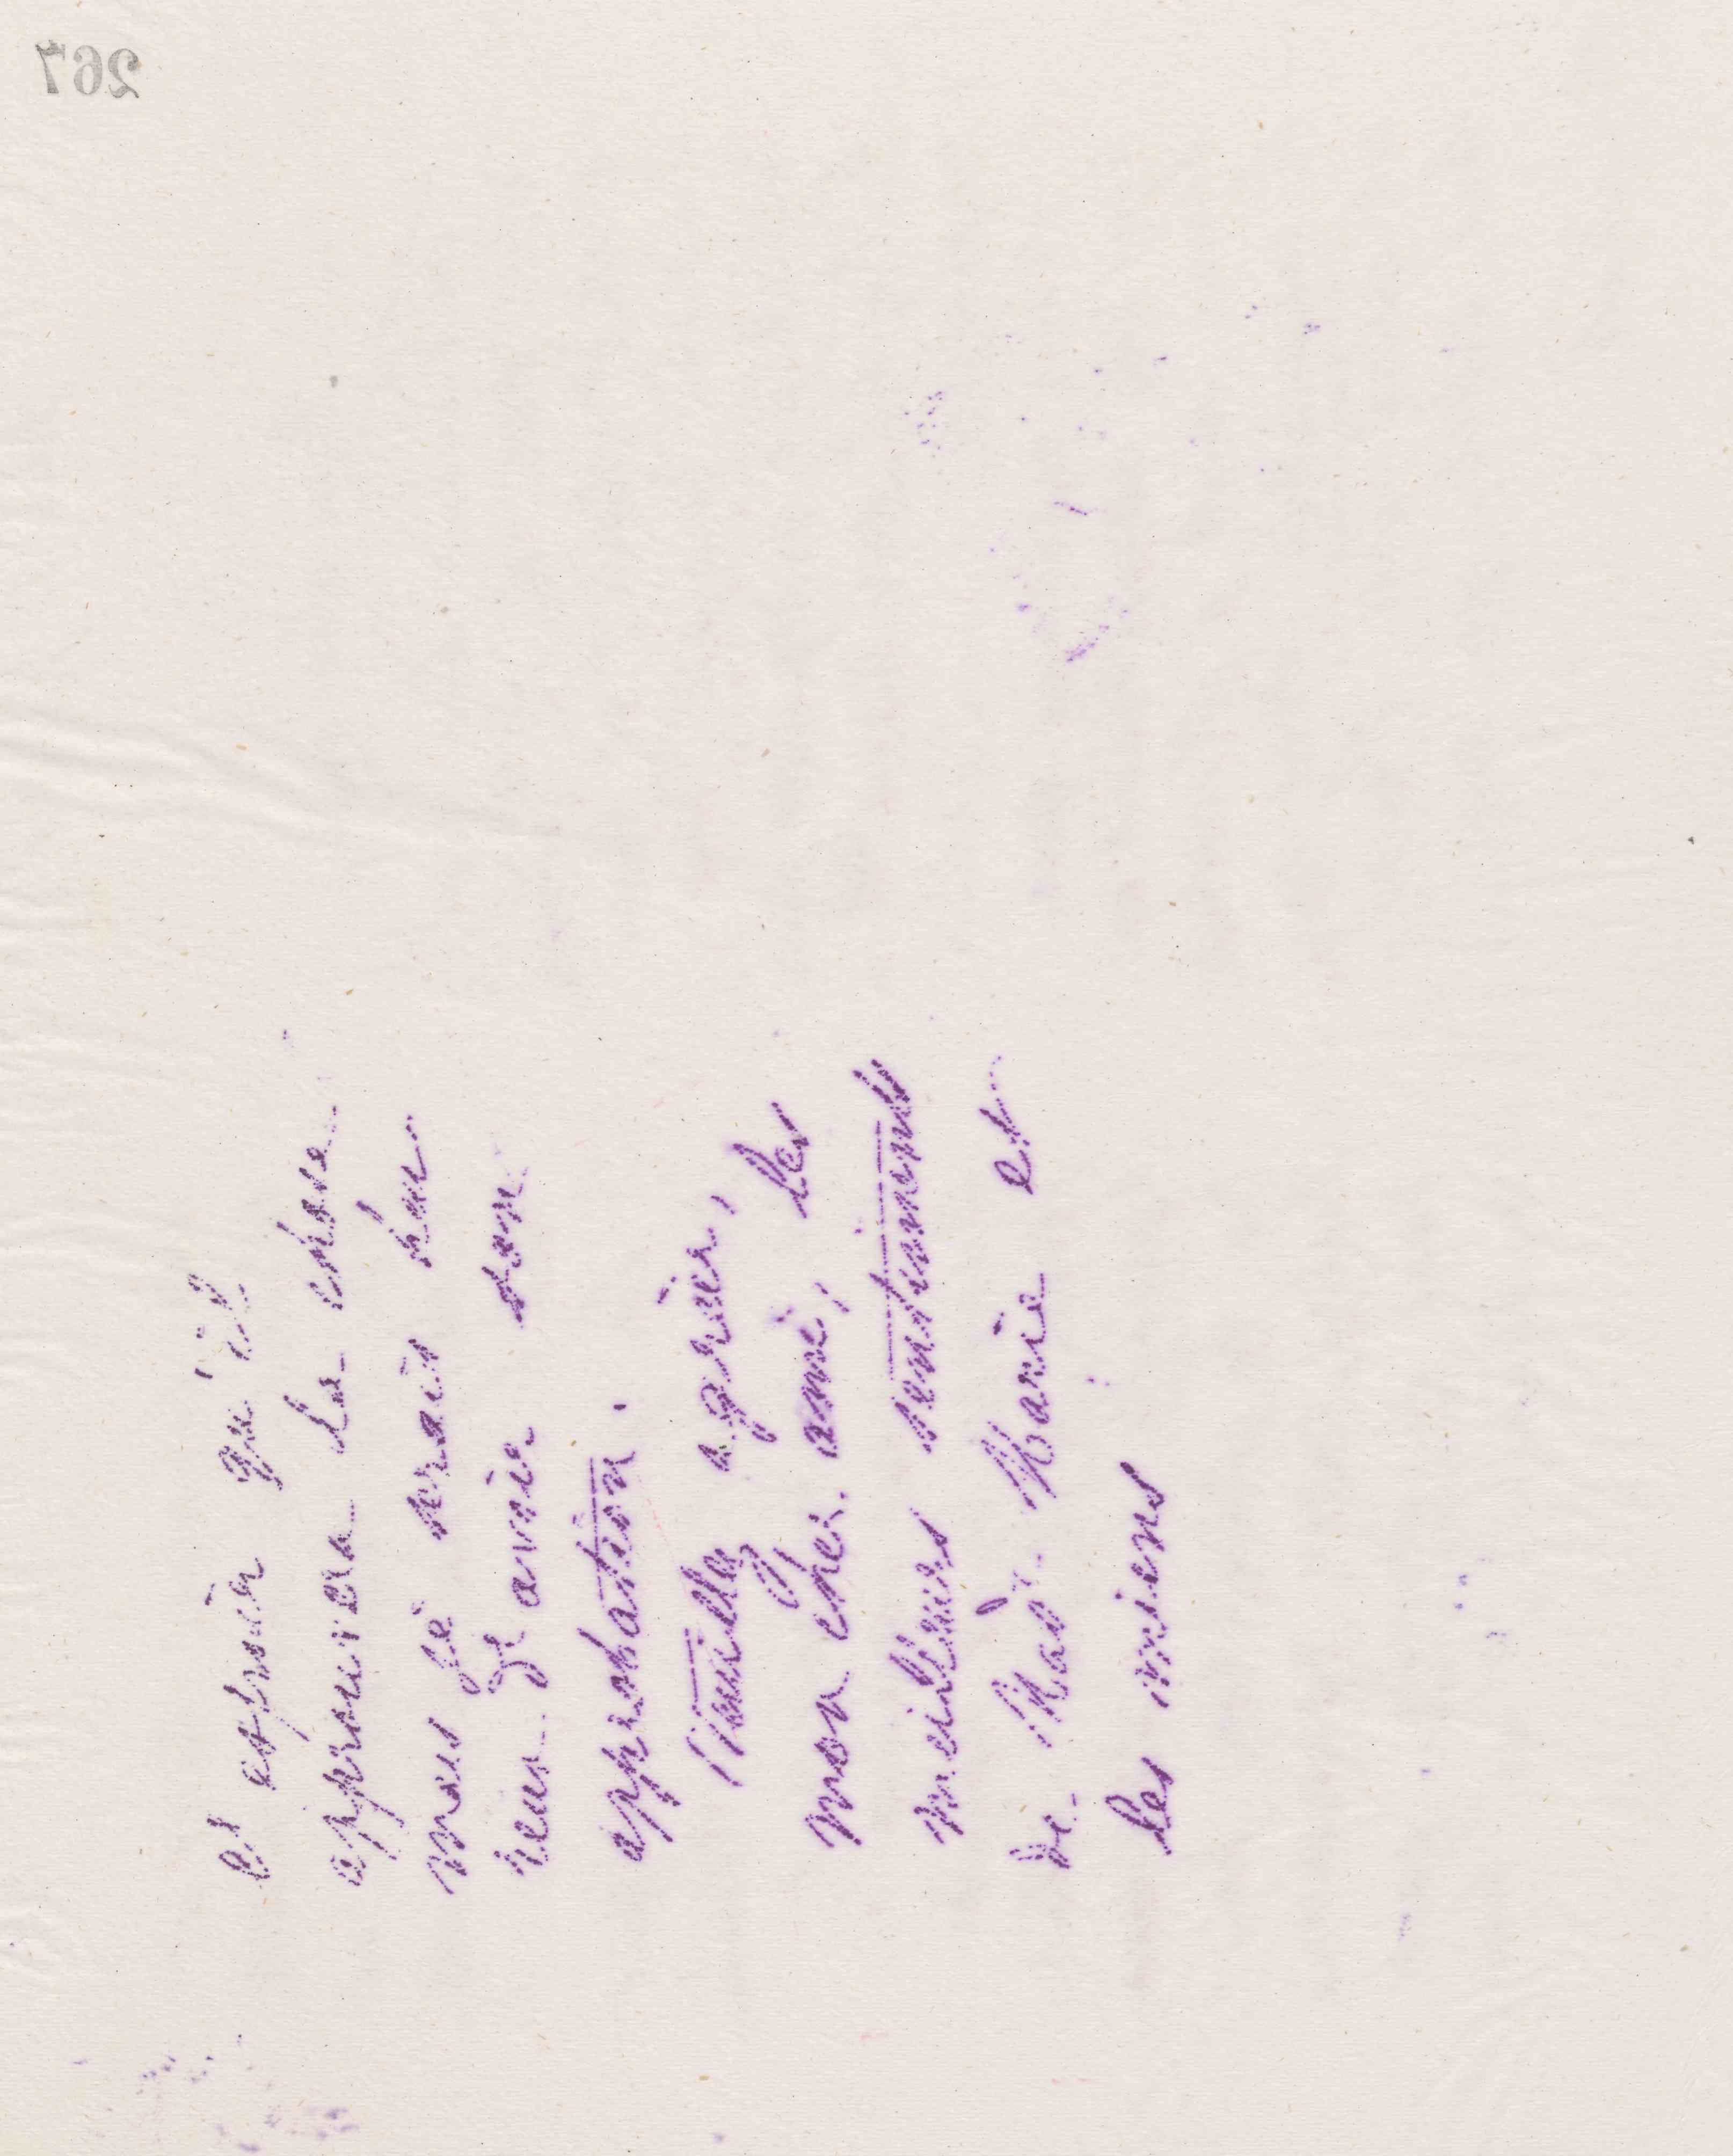 267
et espoir qu'il
approuvera la chose
mais je serais heu
reux d'avoir son
approbation.
Veuillez agréer,
mon cher ami, les
meilleurs sentiments
de Mad. Marie et
les miens